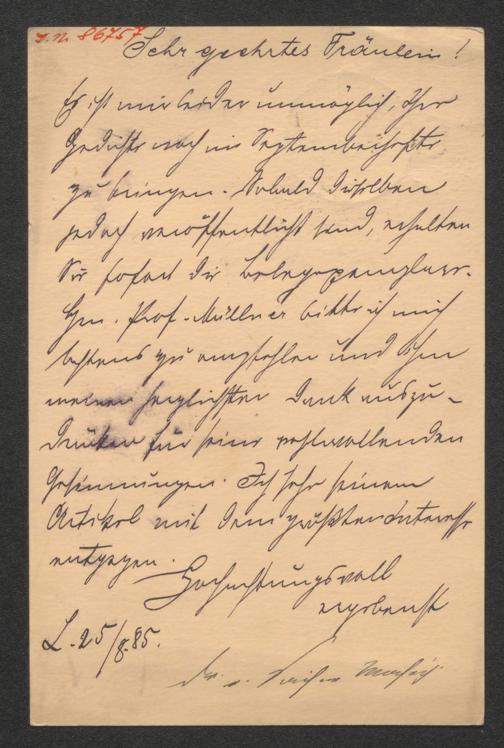 I.N. 86757
Sehr geehrtes Fräulein!
Es ist mir leider unmöglich, Ihre
Gedichte noch im Septemberhefte
zu bringen. Sobald dieselben
jedoch veröffentlicht sind, erhalten
Sie sofort die Belegexemplare.
Hrn. Prof. Müllner bitte ich mich
bestens zu empfehlen und ihm
meinen herzlichsten Dank auszu-
drücken für seine wohlwollenden
Gesinnungen. Ich sehe seinem
Artikel mit dem größten Interesse
entgegen.
Hochachtungsvoll
ergebenst
L. 25/8.85.
Dr. v.